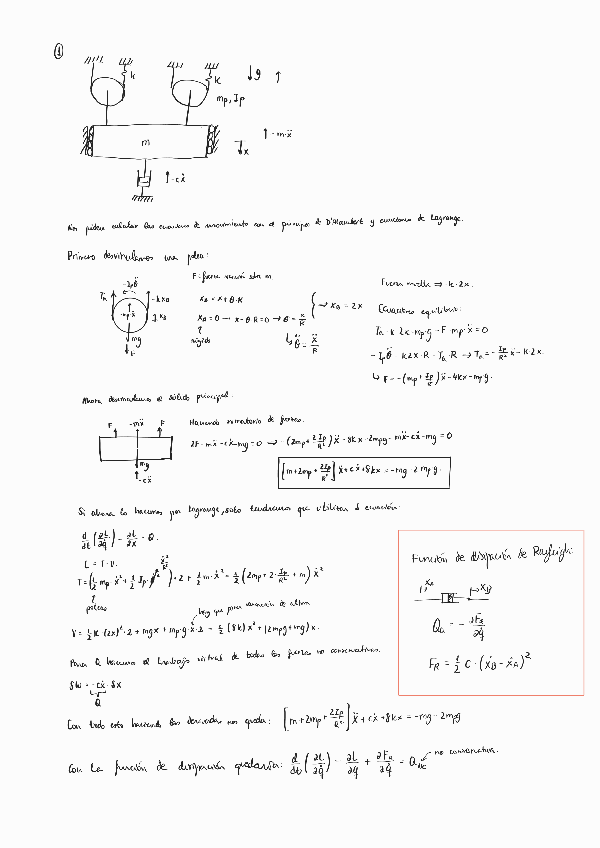 1
k
k
↓g ↑
mp, Ip
m
↑-m·ẍ
↓x
↑-cẋ
Nos piden calcular las ecuaciones de movimiento con el principio de D'Alambert y ecuaciones de Lagrange.
Primero desvinculamos una polea:
F: fuerza sobre m.
Fuerza muelle ⇒ k·2x.
-Ipθ̈
Ta
-kxB
xB
mpẍ
mg
F
xB = x + θ·R
xA = 0 → x - θ·R = 0 → θ = x/R
→ xB = 2x
↳ θ̈ = ẍ/R
Ecuaciones equilibrio:
Ta - k·2x - mp·g - F - mp·ẍ = 0
-Ipθ̈ - k2x·R - Ta·R → Ta = -Ip/R² ẍ - k·2x.
↳ F = -(mp + Ip/R²)ẍ - 4kx - mp·g.
Ahora desvinculamos el sólido principal:
F -mẍ F
mg
-cẋ
Haciendo sumatorio de fuerzas.
2F - mẍ - cẋ - mg = 0 → -(2mp + 2Ip/R²)ẍ - 8kx - 2mpg - mẍ - cẋ - mg = 0
[m + 2mp + 2Ip/R²]ẍ + cẋ + 8kx = -mg - 2mpg.
Si ahora lo hacemos por Lagrange, solo tendremos que utilizar 1 ecuación:
d/dt (∂L/∂ẋ) - ∂L/∂x = Q.
L = T - V.
T = (1/2 mp ẋ² + 1/2 Ip·θ̇²)·2 + 1/2 m·ẋ² = 1/2 (2mp + 2·Ip/R² + m) ẋ²
ẋ²/R²
poleas
hay que poner variación de altura
V = 1/2 k (2x)²·2 + mgx + mp·g·x·2 = 1/2 (8k)x² + (2mpg + mg)x.
Para Q hacemos el trabajo virtual de todas las fuerzas no conservativas.
δW = -cẋ·δx
Q
Con todo esto haciendo las derivadas nos queda: [m + 2mp + 2Ip/R²]ẍ + cẋ + 8kx = -mg - 2mpg
Con la función de disipación quedaría: d/dt (∂L/∂q̇) - ∂L/∂q + ∂FR/∂q̇ = Qnc
no conservativa.
Función de disipación de Rayleigh:
xA
xB
Qa = -∂FR/∂q̇
FR = 1/2 c·(ẋB - ẋA)²